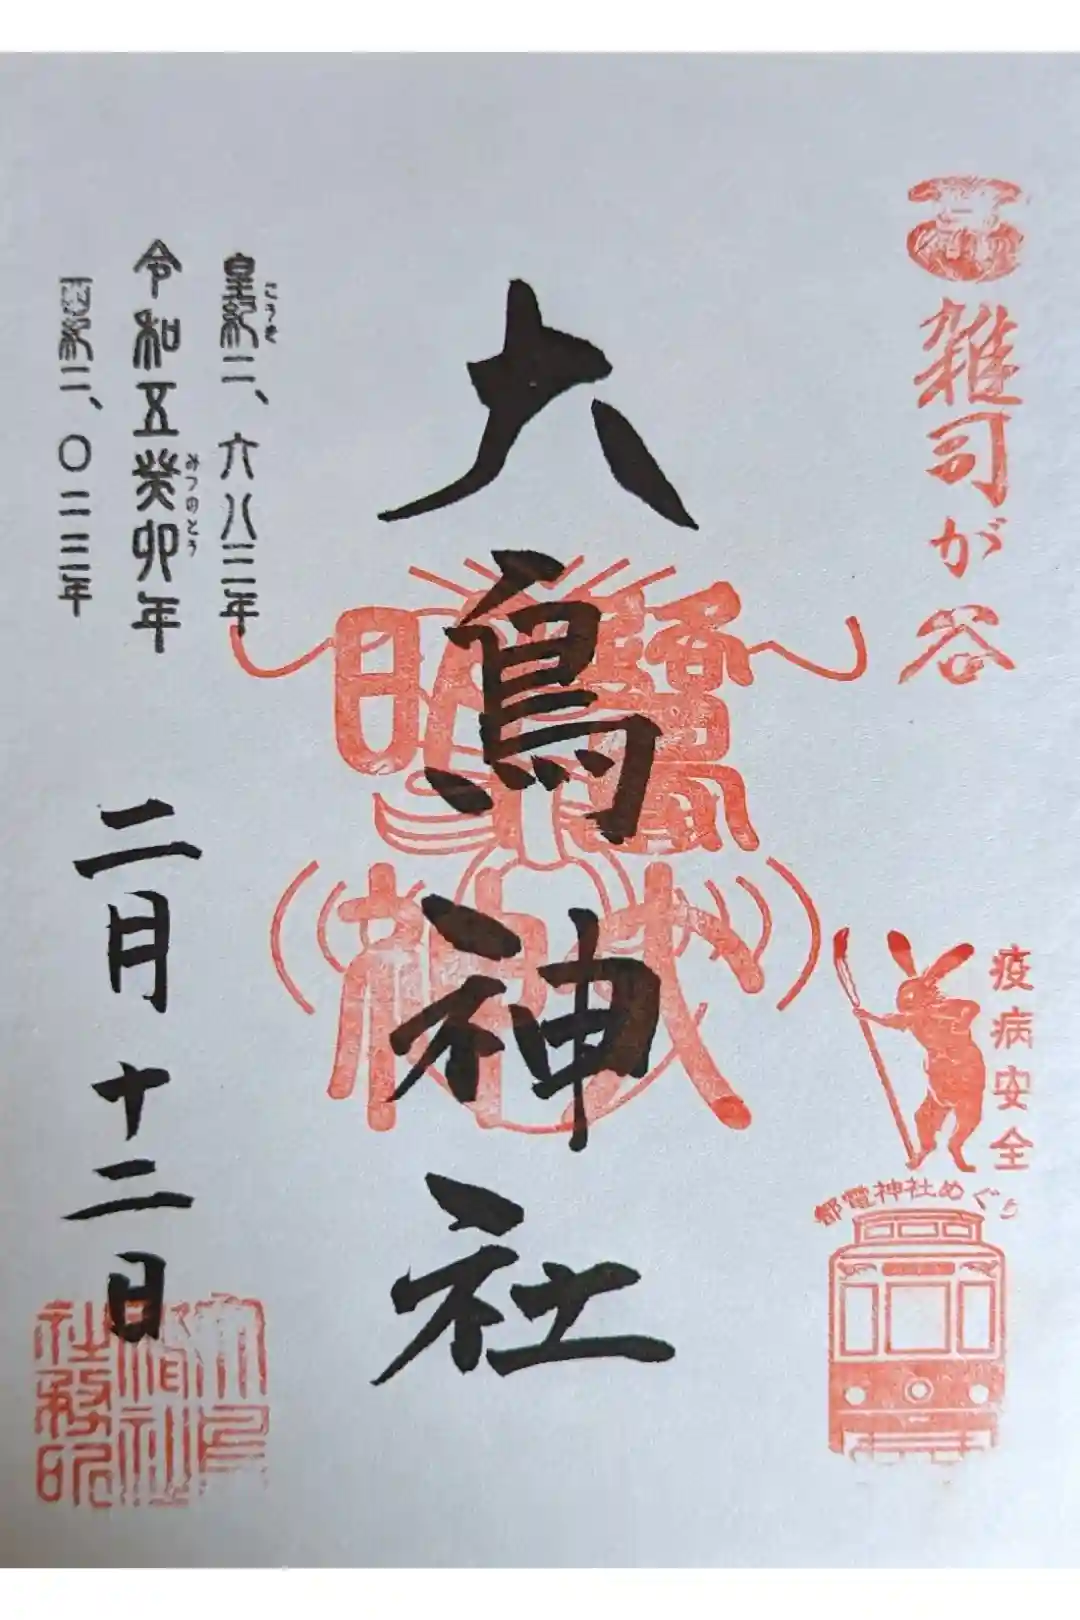 雑司が谷
疫病安全
都電神社めぐり
大鳥神社
皇紀二、六八三年
こうき
令和五癸卯年
みづのとう
西紀二、〇二三年
二月十二日
大鳥
神社
社務所